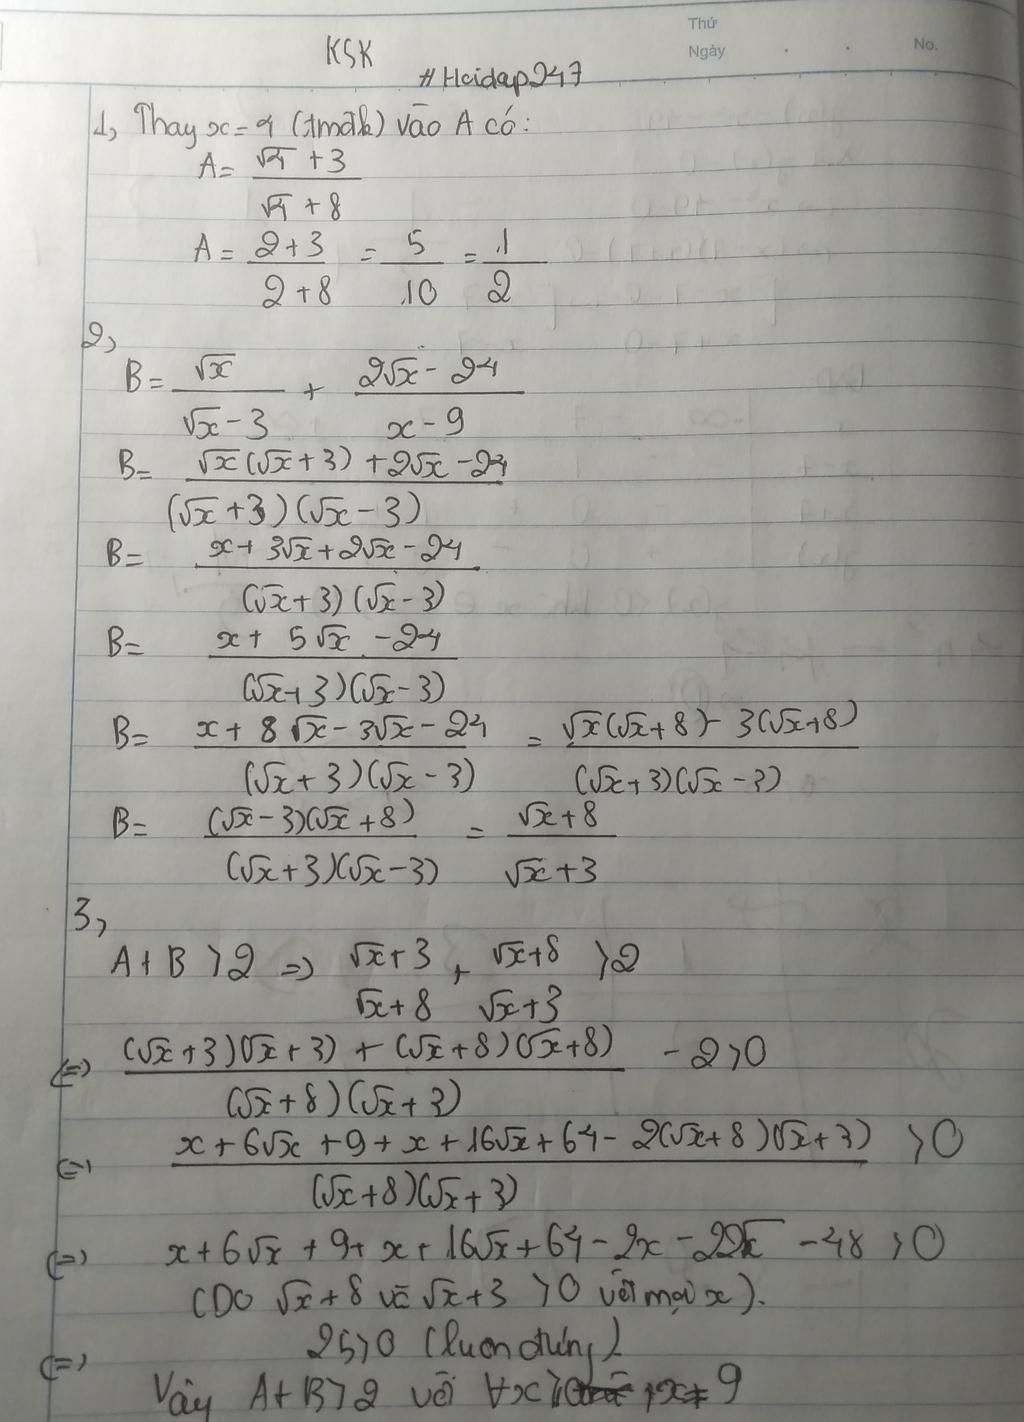 Thứ
KSK
Ngày . . No.
#Hoidap247
1, Thay x = 4 (tmđk) vào A có:
A = (√4 + 3)/(√4 + 8)
A = (2+3)/(2+8) = 5/10 = 1/2
2,
B = √x/(√x - 3) + (2√x - 24)/(x - 9)
B = (√x(√x + 3) + 2√x - 24)/((√x + 3)(√x - 3))
B = (x + 3√x + 2√x - 24)/((√x + 3)(√x - 3))
B = (x + 5√x - 24)/((√x + 3)(√x - 3))
B = (x + 8√x - 3√x - 24)/((√x + 3)(√x - 3)) = (√x(√x + 8) - 3(√x + 8))/((√x + 3)(√x - 3))
B = ((√x - 3)(√x + 8))/((√x + 3)(√x - 3)) = (√x + 8)/(√x + 3)
3,
A + B > 2 => (√x + 3)/(√x + 8) + (√x + 8)/(√x + 3) > 2
(=) ((√x + 3)(√x + 3) + (√x + 8)(√x + 8))/((√x + 8)(√x + 3)) - 2 > 0
(=) (x + 6√x + 9 + x + 16√x + 64 - 2(√x + 8)(√x + 3))/((√x + 8)(√x + 3)) > 0
(=) x + 6√x + 9 + x + 16√x + 64 - 2x - 22√x - 48 > 0
(DO √x + 8 và √x + 3 > 0 với mọi x).
(=) 25 > 0 (luôn đúng)
Vậy A + B > 2 với ∀x ≥ 0 , x ≠ 9